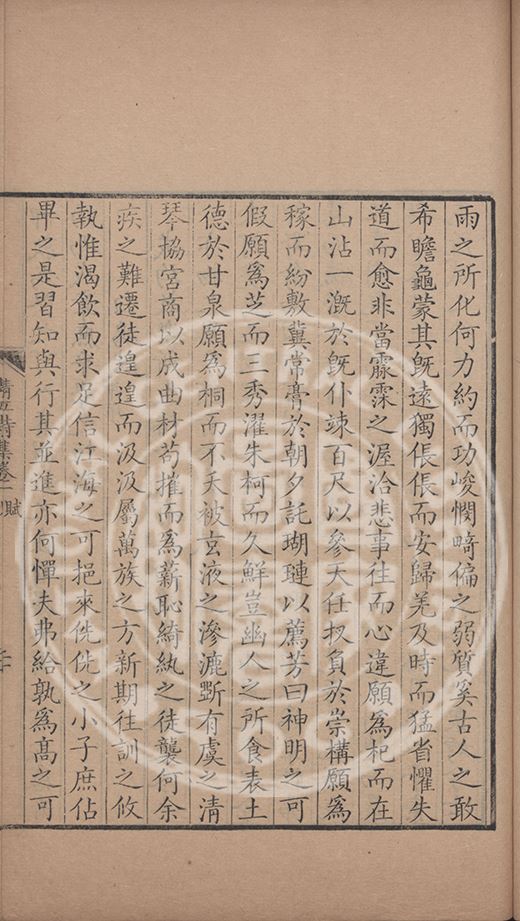 雨之所化何力約而功峻憫畸偏之弱質奚古人之敢
希瞻龜蒙其既遠獨倀倀而安歸羌及時而猛省懼失
道而愈非當霢霂之渥洽悲事往而心違願爲杞而在
山沾一漑於旣仆竦百尺以參天任扠負於崇構願爲
稼而紛敷冀常膏於朝夕託瑚璉以薦芳曰神明之可
假願爲芝而三秀濯朱柯而久鮮豈幽人之所食表土
德於甘泉願爲桐而不夭被玄液之滲漉斲有虞之清
琴協宮商以成曲材苟摧而爲薪恥綺紈之徒襲何余
疾之難遷徒遑遑而汲汲屬萬族之方新期往訓之攸
執惟渴飲而求足信江海之可挹來侁侁之小子庶佔
畢之是習知與行其並進亦何憚夫弗給孰爲高之可
詩集卷一 賦